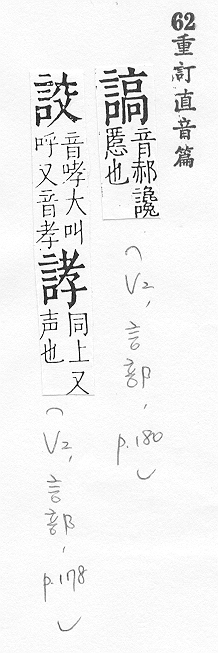 62重訂直音篇
謞音郝讒慝也
(V2, 言部, p.180)
詨音哮大叫呼又音孝誟同上又声也
(V2, 言部, p.178)